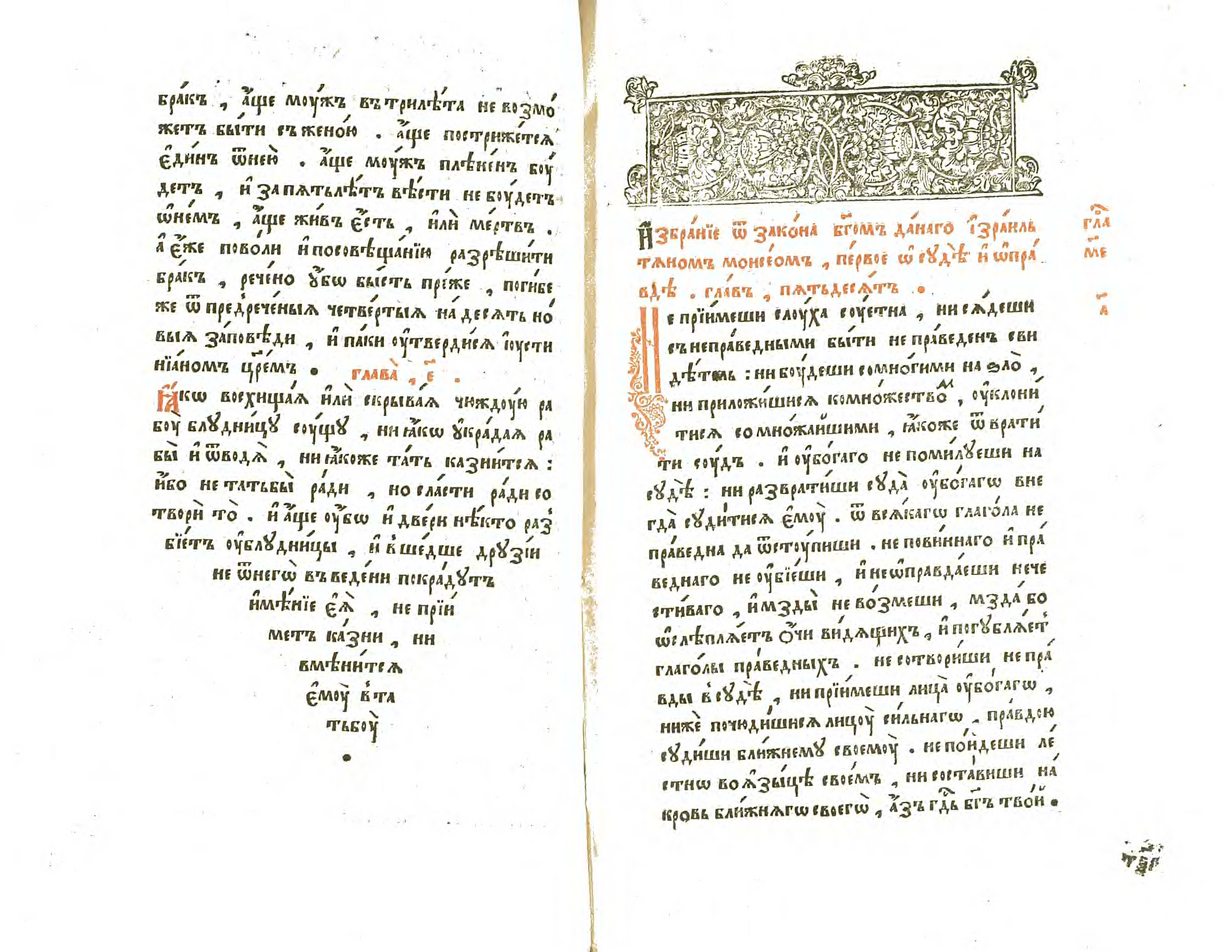 бра́къ , а҆́ще мꙋ́жъ въ трилѣ́та не возмо́
жетъ бы́ти съ женою . а҆́ще пострижется
є҆ди́нъ ѿ нею̀ . а҆́ще мꙋ́жъ плѣне́нъ бꙋ́
детъ , и҆ за пѧть лѣ́тъ вѣ́сти не бꙋ́детъ
ѡ҆ не́мъ , а҆́ще жи́въ є҆́сть , и҆лѝ ме́ртвъ .
а҆ є҆́же поволи и҆ посовѣща́нїю разрѣши́ти
бра́къ , рече́но ᲂу҆́бѡ бы́сть пре́же , поги́бе
же ѿ предрече́ныѧ четве́ртыѧ на́десѧть но́
выѧ за́повѣди , и҆ па́ки ᲂу҆тверди́сѧ і҆ꙋсти
нїа́номъ цр҃е́мъ .
глава̀ , є҃ .
Ꙗ҆́кѡ восхища́ѧ и҆лѝ скрыва́ѧ чюждꙋ́ю ра
бꙋ̀ блꙋдни́цꙋ сꙋ́щꙋ , ни ꙗ҆́кѡ ᲂу҆кра́даѧ ра
бы̀ и҆ ѿводѧ̀ , ни ꙗ҆́коже та́ть казни́тсѧ :
и҆́бо не татьбы̀ ра́ди , но сла́сти ра́ди со
творѝ то̀ . и҆ а҆́ще ᲂу҆́бѡ и҆ две́ри нѣ́кто раз̾
бїе́тъ ᲂу҆ блꙋдни́цы , и҆ в̾ше́дше дрꙋзі́и
не ѿ негѡ̀ въведе́ни покра́дꙋтъ
и҆мѣ́нїе є҆ѧ̀ , не прїи́
метъ ка́зни , ни
вмѣни́тсѧ
є҆мꙋ̀ в̾ та
тьбꙋ̀
.
И҆збра́нїе ѿ зако́на бг҃омъ да́наго і҆зра́иль
тѧномъ моисе́омъ , пе́рвое ѡ҆ сꙋдѣ̀ и҆ ѡ҆пра́
вдѣ . главъ , пѧтьдесѧ́тъ .
гла
ме
а҃
Не прїи́меши слꙋ́ха сꙋ́етна , ни сѧ́деши
съ непра́ведными бы́ти не пра́веденъ сви
дѣ́тель : ни бꙋ́деши со мно́гими на ѕло̀ ,
ни приложи́шисѧ ко мно́жествоⷨ , ᲂу҆клони́
тисѧ со мно́жайшими , ꙗ҆́коже ѿврати́
ти сꙋ́дъ . и҆ ᲂу҆бо́гаго не поми́лꙋеши на
сꙋдѣ̀ : ни разврати́ши сꙋда̀ ᲂу҆бо́гагѡ вне
гда̀ сꙋди́тисѧ є҆мꙋ̀ . ѿ всѧ́кагѡ глаго́ла не
пра́ведна да ѿстꙋ́пиши . не пови́ннаго и҆ пра́
веднаго не ᲂу҆бїе́ши , и҆ не ѡ҆правда́еши нече
сти́ваго , и҆ мзды̀ не во́змеши , мзда́ бо
ѡ҆слѣплѧ́етъ ѻ҆́чи ви́дѧщихъ , и҆ погꙋблѧ́еⷮ
глаго́лы пра́ведныхъ . не сотвори́ши непра́
вды в̾ сꙋдѣ̀ , ни прїи́меши лица̀ ᲂу҆бо́гагѡ ,
нижѐ почюди́шисѧ лицꙋ̀ си́льнагѡ , пра́вдою
сꙋ́диши бли́жнемꙋ своемꙋ̀ . не по́йдеши ле́
стию во ꙗ҆зы́цѣ свое́мъ , ни соста́виши на́
кровь бли́жнѧгѡ своегѡ̀ , а҆́зъ гд҇ь бг҃ъ тво́й .